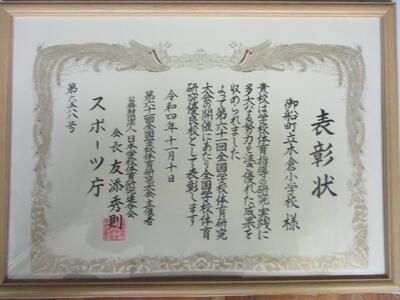 表彰状
御船町立木倉小学校 様
貴校は学校体育指導の研究実践に
多大なる努力を注ぎ優れた成果を
収められました
よって第六十一回全国学校体育研究
大会の開催にあたり全国学校体育
研究優良校として表彰します
令和四年十一月十日
第六十一回全国学校体育研究大会主催者
公益財団法人 日本学校体育研究連合会
会長 友添秀則
スポーツ庁
第一五八号